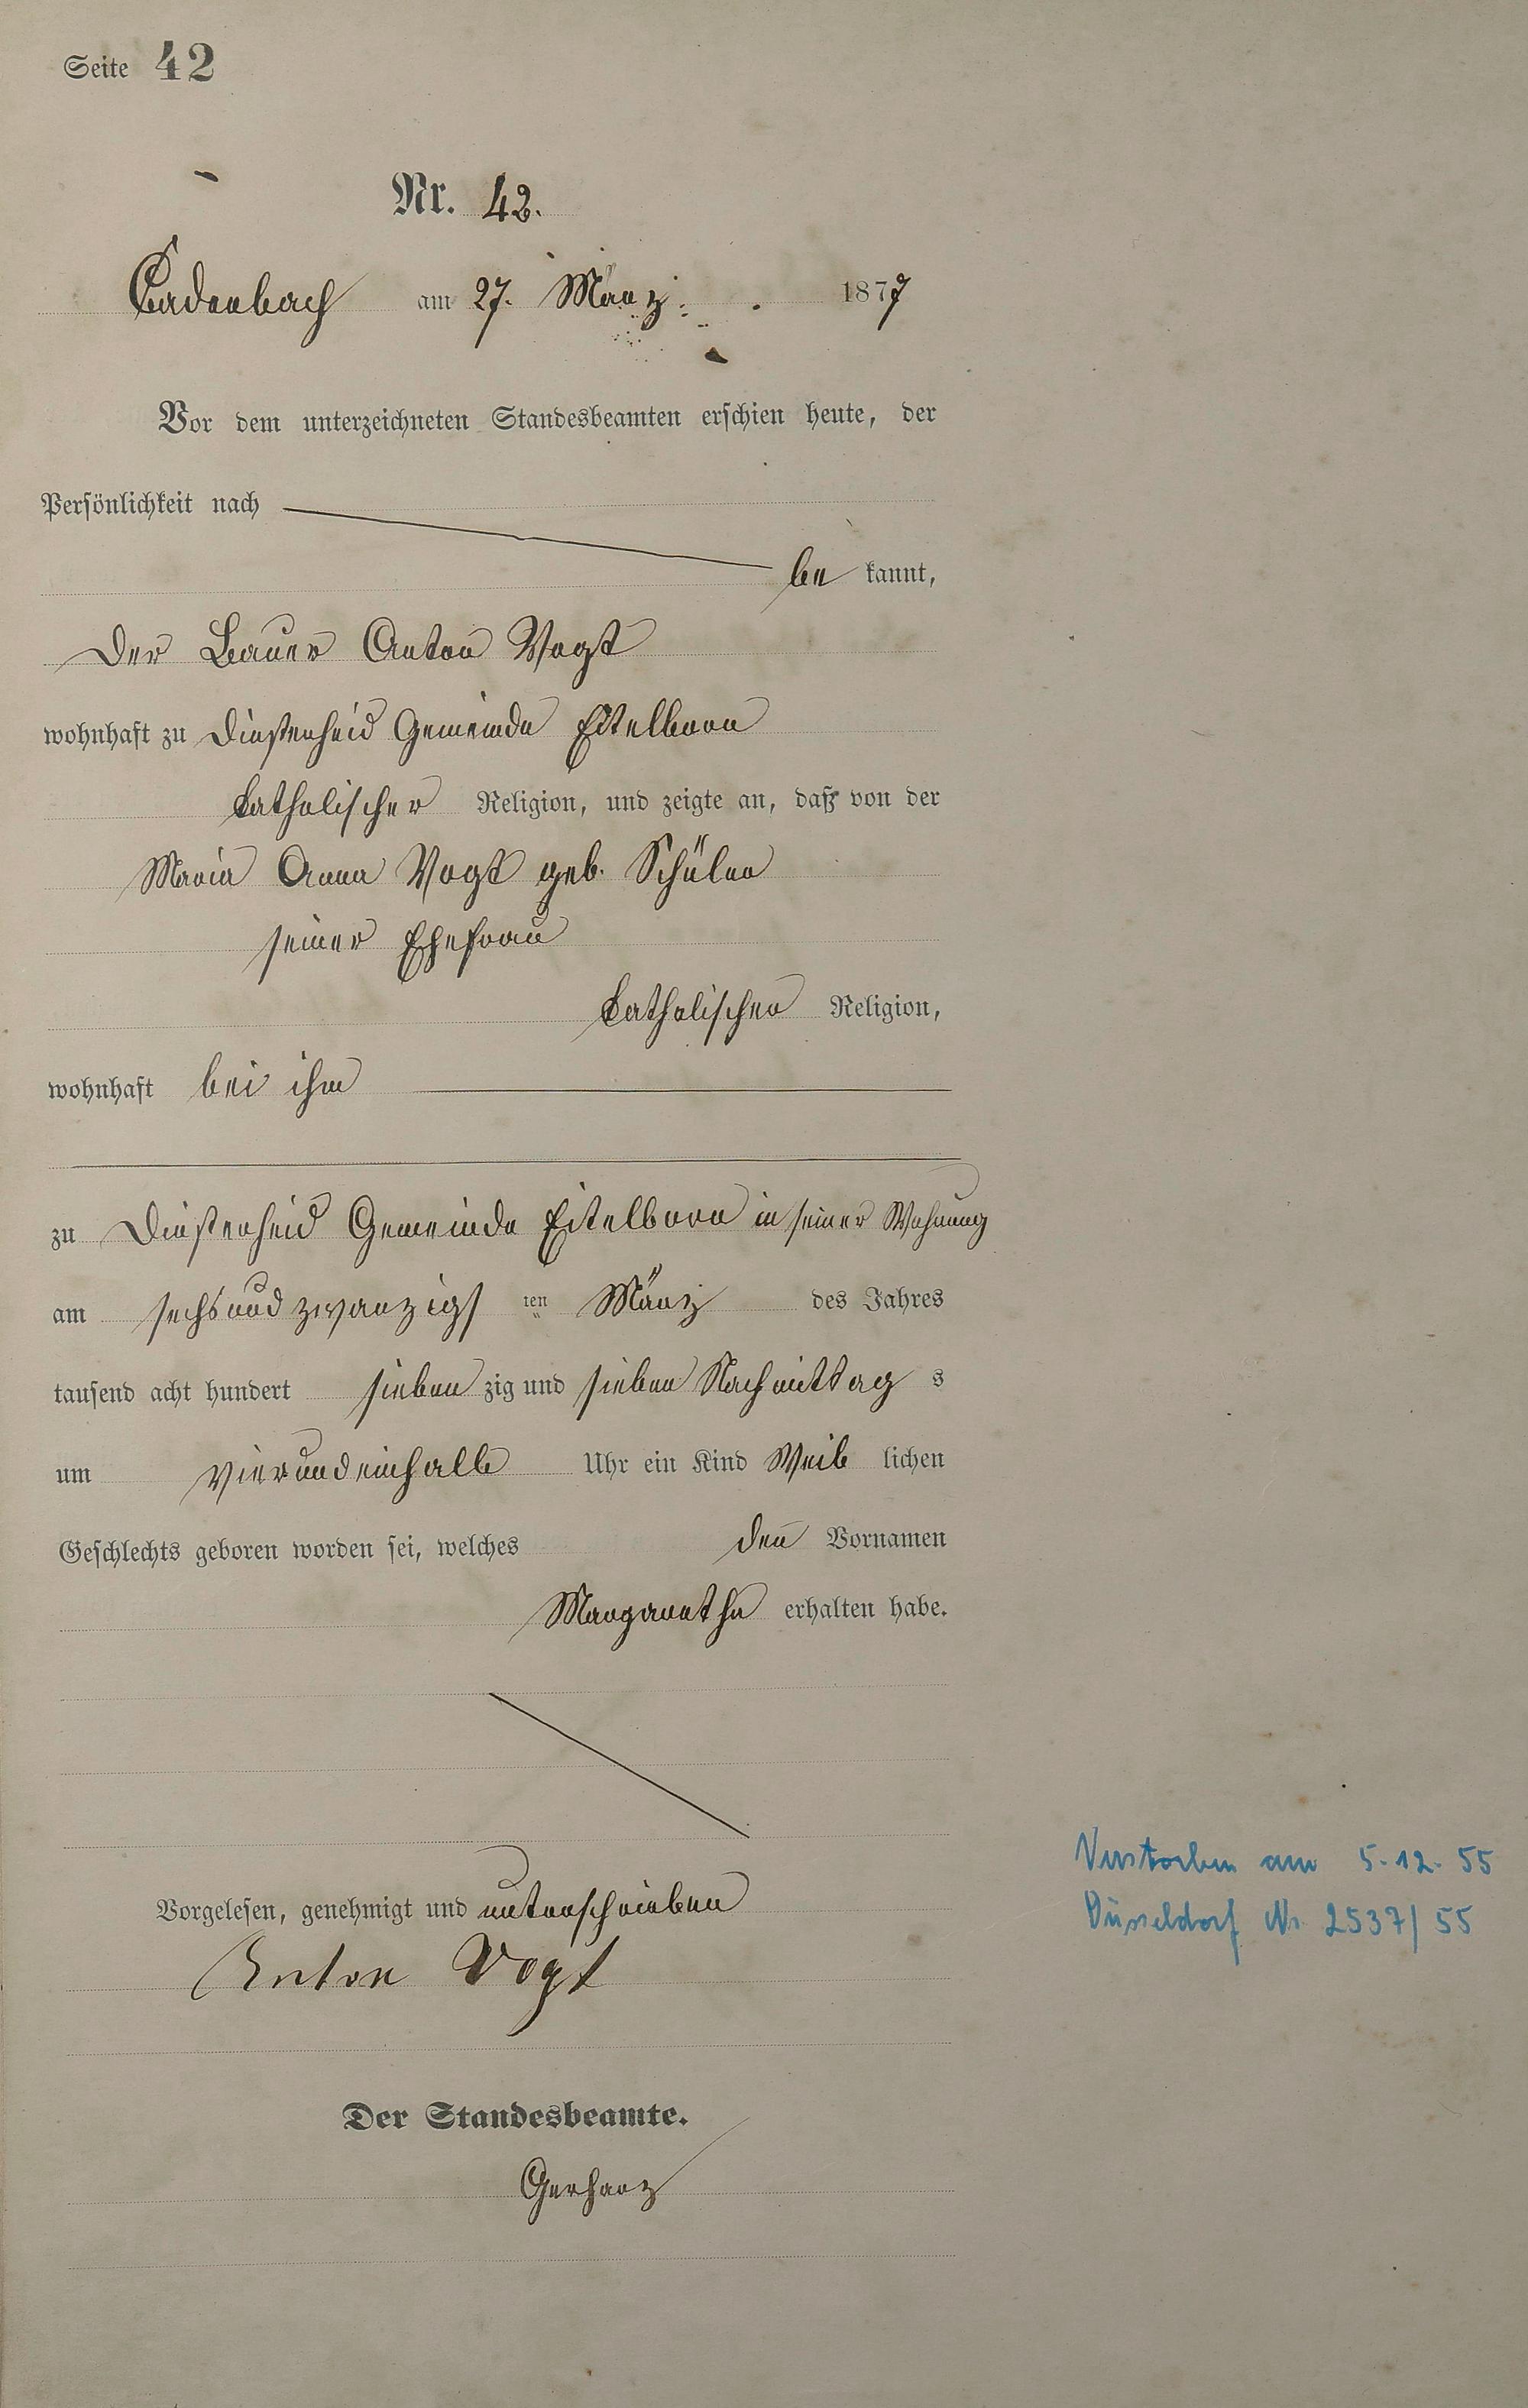 Seite 42
Nr. 42.
Cadenbach am 27. März 1877
Vor dem unterzeichneten Standesbeamten erschien heute, der
Persönlichkeit nach
be kannt,
Der Bauer Anton Vogt
wohnhaft zu Dinstenheid Gemeinde Eitelborn
katholischer Religion, und zeigte an, daß von der
Maria Anna Vogt geb. Schüler
seiner Ehefrau
katholischer Religion,
wohnhaft bei ihm
zu Dinstenheid Gemeinde Eitelborn in seiner Wohnung
am sechsundzwanzigs ten März des Jahres
tausend acht hundert sieben zig und sieben Nachmittag s
um vierundeinhalb Uhr ein Kind Weib lichen
Geschlechts geboren worden sei, welches den Vornamen
Margaretha erhalten habe.
Vorgelesen, genehmigt und unterschrieben
Anton Vogt
Der Standesbeamte.
Gerharz
Verstorben am 5.12.55
Düsseldorf Nr. 2537/55